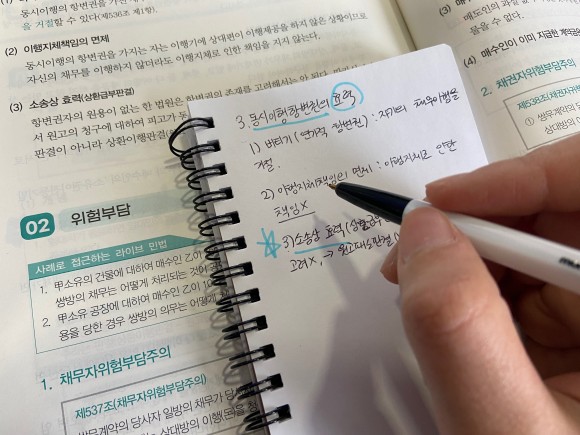 동시이행의 항변권을 가
을 거절할 수 있다(제536조 제1항).
(2) 이행지체책임의 면제
동시이행의 항변권을 가지는 자는 이행기에 상대편이 이행제공을 하지 않은 상황이므로
자신의 채무를 이행하지 않더라도 이행지체로 인한 책임을 지지 않는다.
(3) 소송상 효력(상환급부판결)
항변권자의 원용이 없는 한 법원은 항변권의 존재를 고려해서는 안 된다.
서 원고의 청구에 대하여 피고가 동
판결이 아니라 상환이행판결(
02 위험부담
사례로 접근하는 라이브 민법
1. 甲소유의 건물에 대하여 매수인 乙이
쌍방의 채무는 어떻게 처리되는 것이
2. 甲소유 공장에 대하여 매수인 乙이 10
용을 당한 경우 쌍방의 의무는 어떻게
1. 채무자위험부담주의
제537조(채무자위험부담주의)
쌍무계약의 당사자 일방의 채무가 당
상대방의 이행(돈)을 청
3. 동시이행항변권의 효력
1) 버티기(연기적 항변권) : 자기의 채무이행을
거절.
2) 이행지체책임의 면제 : 이행지체로 인한
책임X
3) 소송상 효력(상환급부
고려X, → 원고패소판결(X
(3)
매도인의 과실
물을 수
(4) 매수인이 이미 지급한 계약금
2. 채권자위험부담주의
제538조(채권자
① 쌍무계약의
상대방의